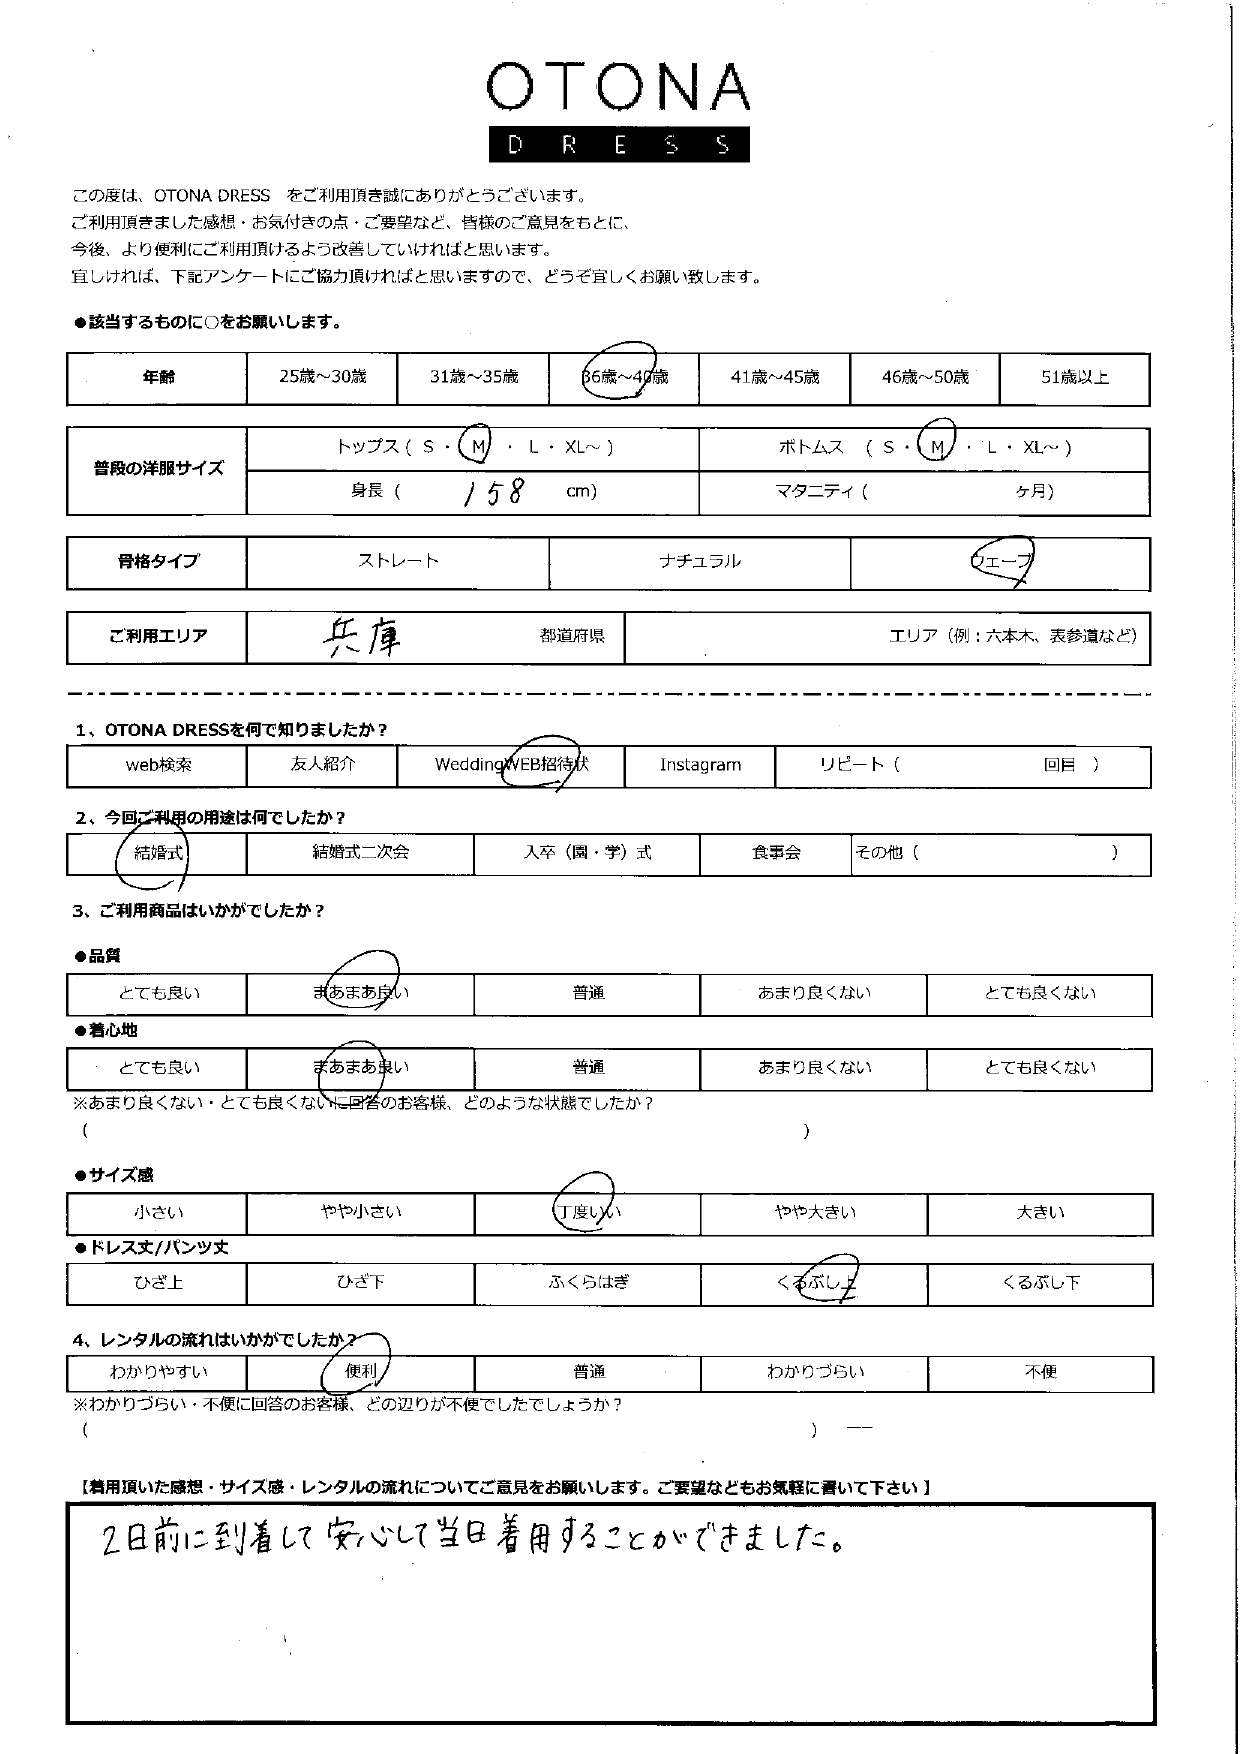 OTONA
DRESS
この度は、OTONA DRESS　をご利用頂き誠にありがとうございます。
ご利用頂きました感想・お気付きの点・ご要望など、皆様のご意見をもとに、
今後、より便利にご利用頂けるよう改善していければと思います。
宜しければ、下記アンケートにご協力頂ければと思いますので、どうぞ宜しくお願い致します。
●該当するものに○をお願いします。
年齢 25歳～30歳 31歳～35歳 36歳～40歳 41歳～45歳 46歳～50歳 51歳以上
普段の洋服サイズ
トップス ( S ・ M ・ L ・ XL～ ) ボトムス ( S ・ M ・ L ・ XL～ )
身長 ( 158 cm) マタニティ ( ヶ月)
骨格タイプ ストレート ナチュラル ウェーブ
ご利用エリア 兵庫 都道府県 エリア（例：六本木、表参道など）
1、OTONA DRESSを何で知りましたか？
web検索 友人紹介 WeddingWEB招待状 Instagram リピート（ 回目 ）
2、今回ご利用の用途は何でしたか？
結婚式 結婚式二次会 入卒（園・学）式 食事会 その他（ ）
3、ご利用商品はいかがでしたか？
●品質
とても良い まあまあ良い 普通 あまり良くない とても良くない
●着心地
とても良い まあまあ良い 普通 あまり良くない とても良くない
※あまり良くない・とても良くないに回答のお客様、どのような状態でしたか？
( )
●サイズ感
小さい やや小さい 丁度いい やや大きい 大きい
●ドレス丈/パンツ丈
ひざ上 ひざ下 ふくらはぎ くるぶし上 くるぶし下
4、レンタルの流れはいかがでしたか？
わかりやすい 便利 普通 わかりづらい 不便
※わかりづらい・不便に回答のお客様、どの辺りが不便でしたでしょうか？
( )
【着用頂いた感想・サイズ感・レンタルの流れについてご意見をお願いします。ご要望などもお気軽に書いて下さい】
2日前に到着して安心して当日着用することができました。